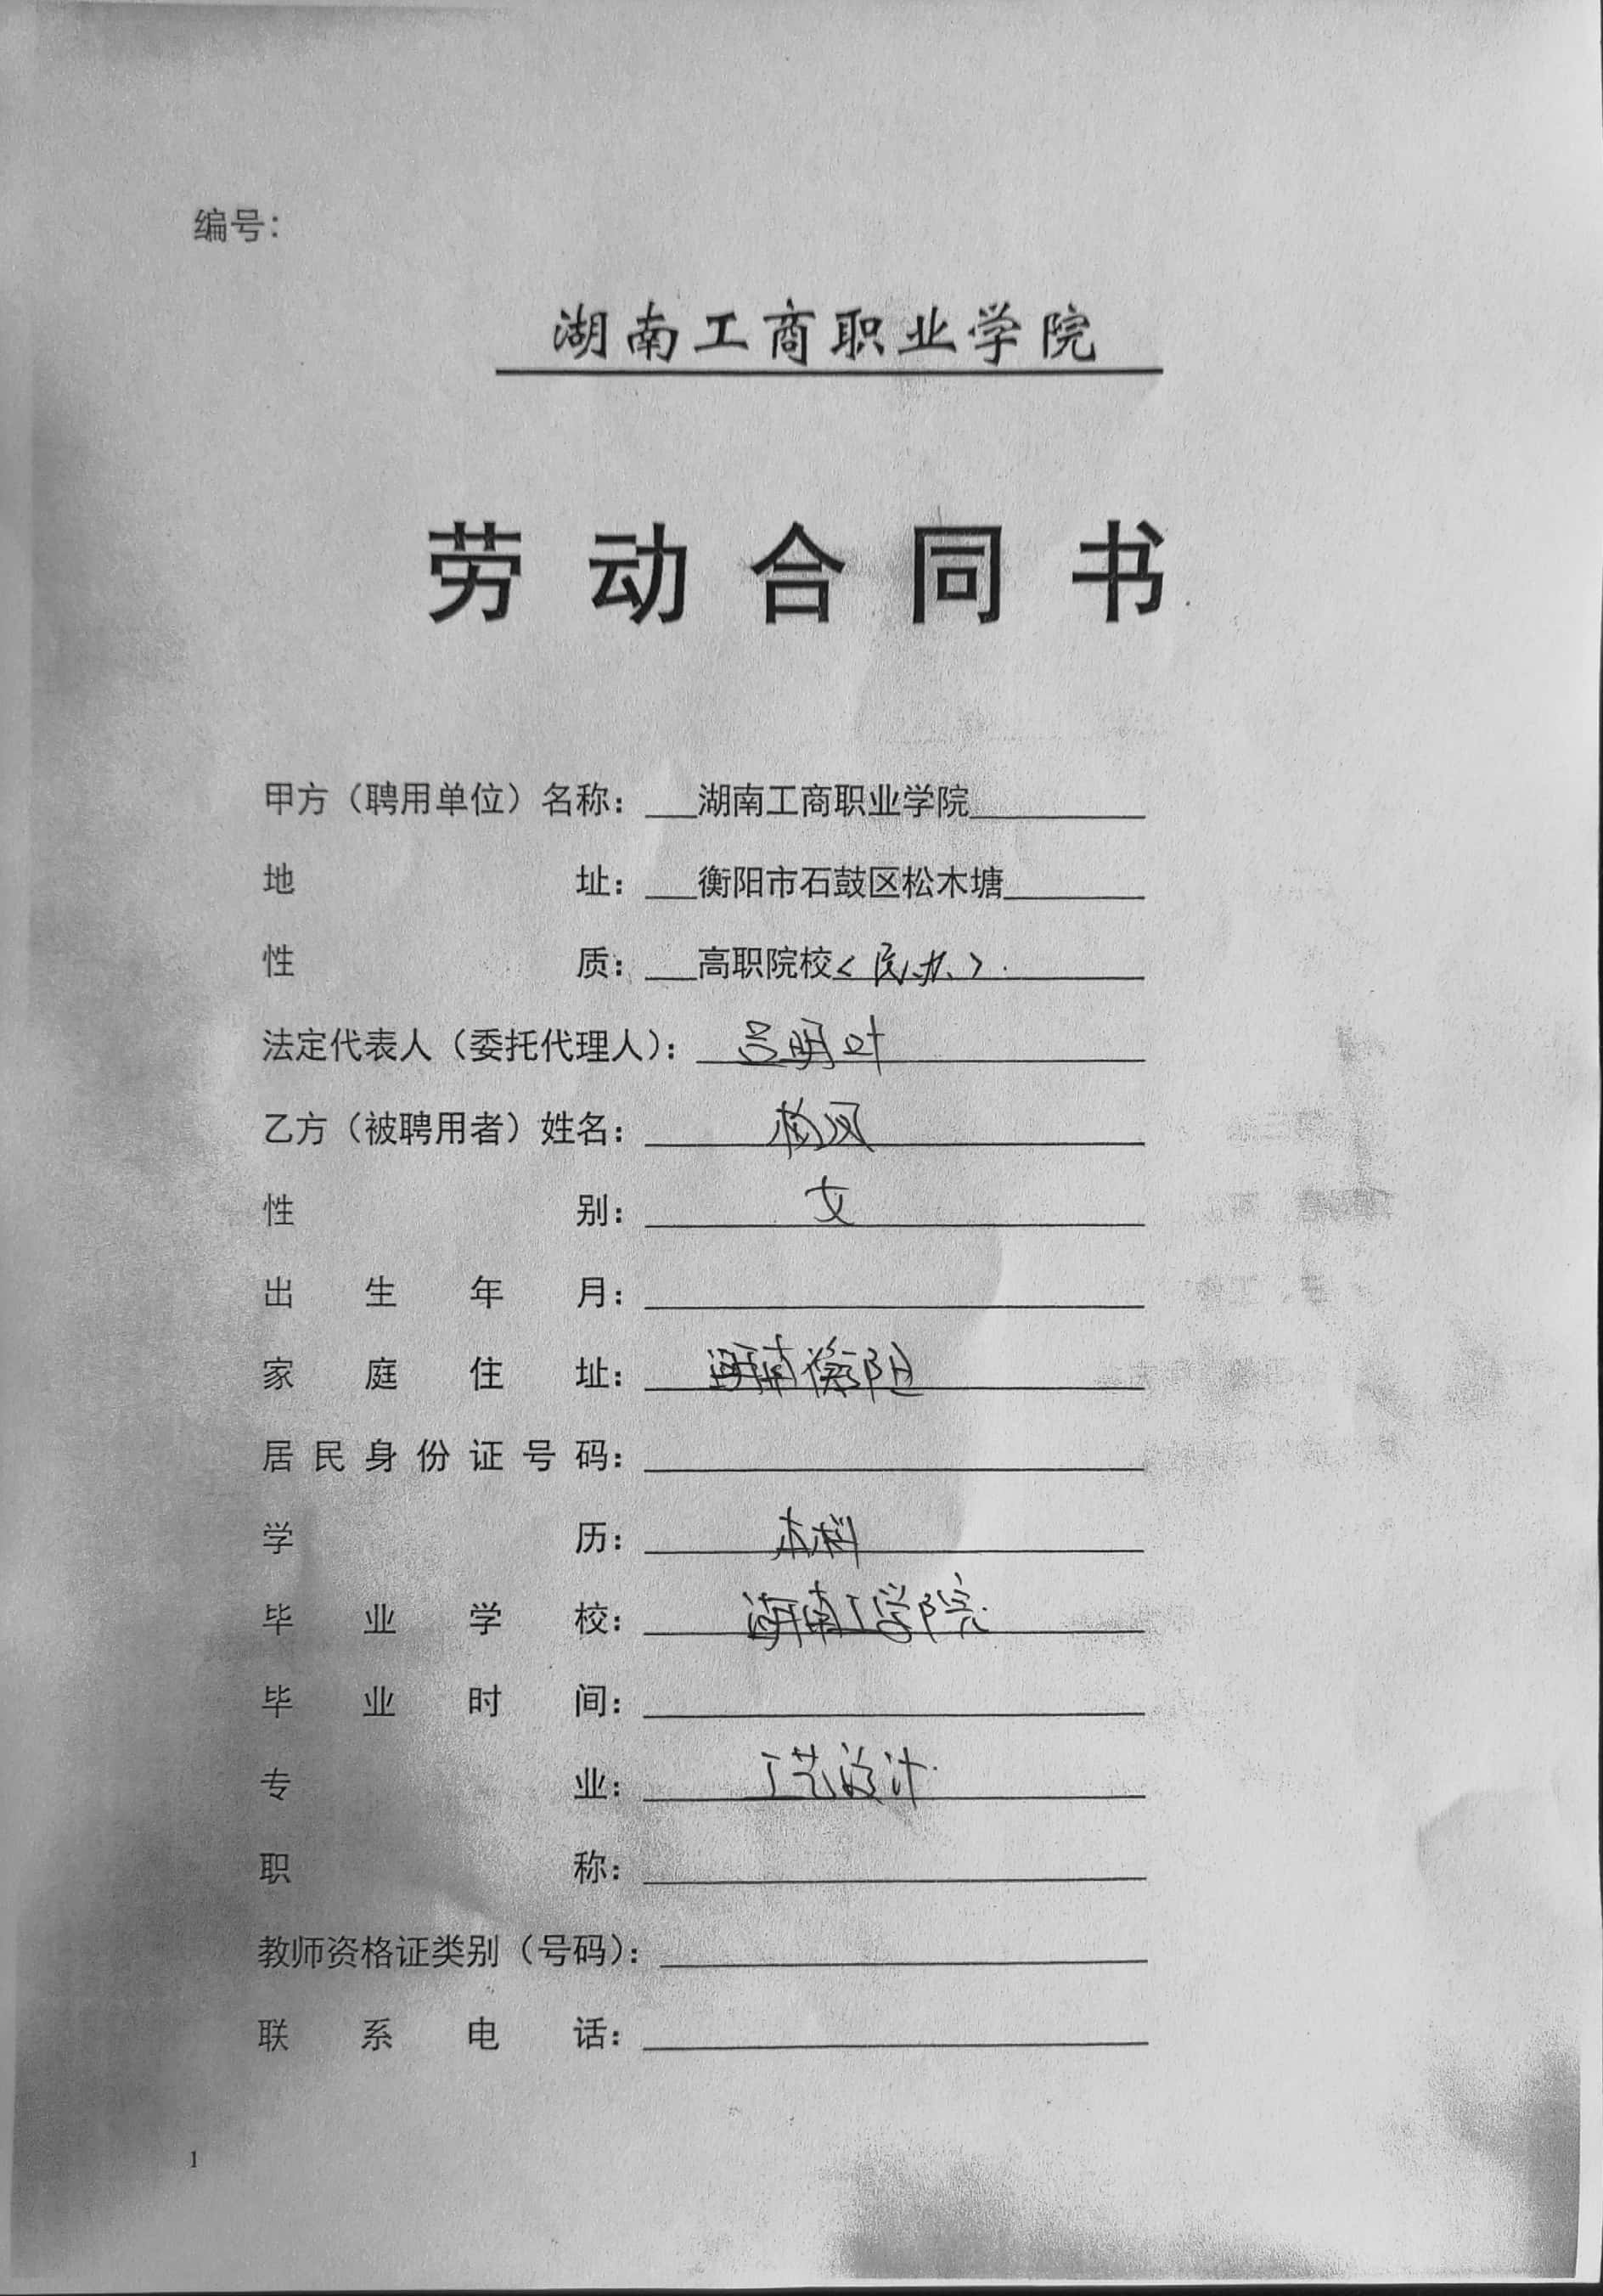 编号：
湖南工商职业学院
劳动合同书
甲方（聘用单位）名称：湖南工商职业学院
地址：衡阳市石鼓区松木塘
性质：高职院校（民办）
法定代表人（委托代理人）：吕明叶
乙方（被聘用者）姓名：杨凤
性别：女
出生年月：
家庭住址：湖南衡阳
居民身份证号码：
学历：本科
毕业学校：湖南工学院
毕业时间：
专业：工艺设计
职称：
教师资格证类别（号码）：
联系电话：
1